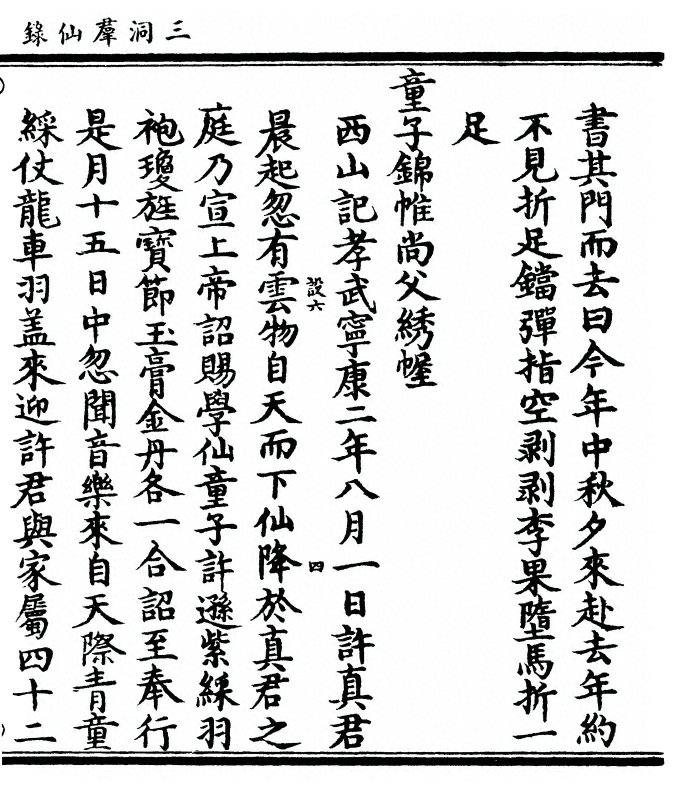 三洞羣仙錄
書其門而去曰今年中秋夕來赴去年約
不見折足鐺彈指空剥剥李果墮馬折一
足
童子錦帷尚父綉幄
西山記孝武寧康二年八月一日許真君
設六
四
晨起忽有雲物自天而下仙降於真君之
庭乃宣上帝詔賜學仙童子許遜紫綵羽
袍瓊旌寶節玉膏金丹各一合詔至奉行
是月十五日中忽聞音樂來自天際青童
綵仗龍車羽盖來迎許君與家屬四十二